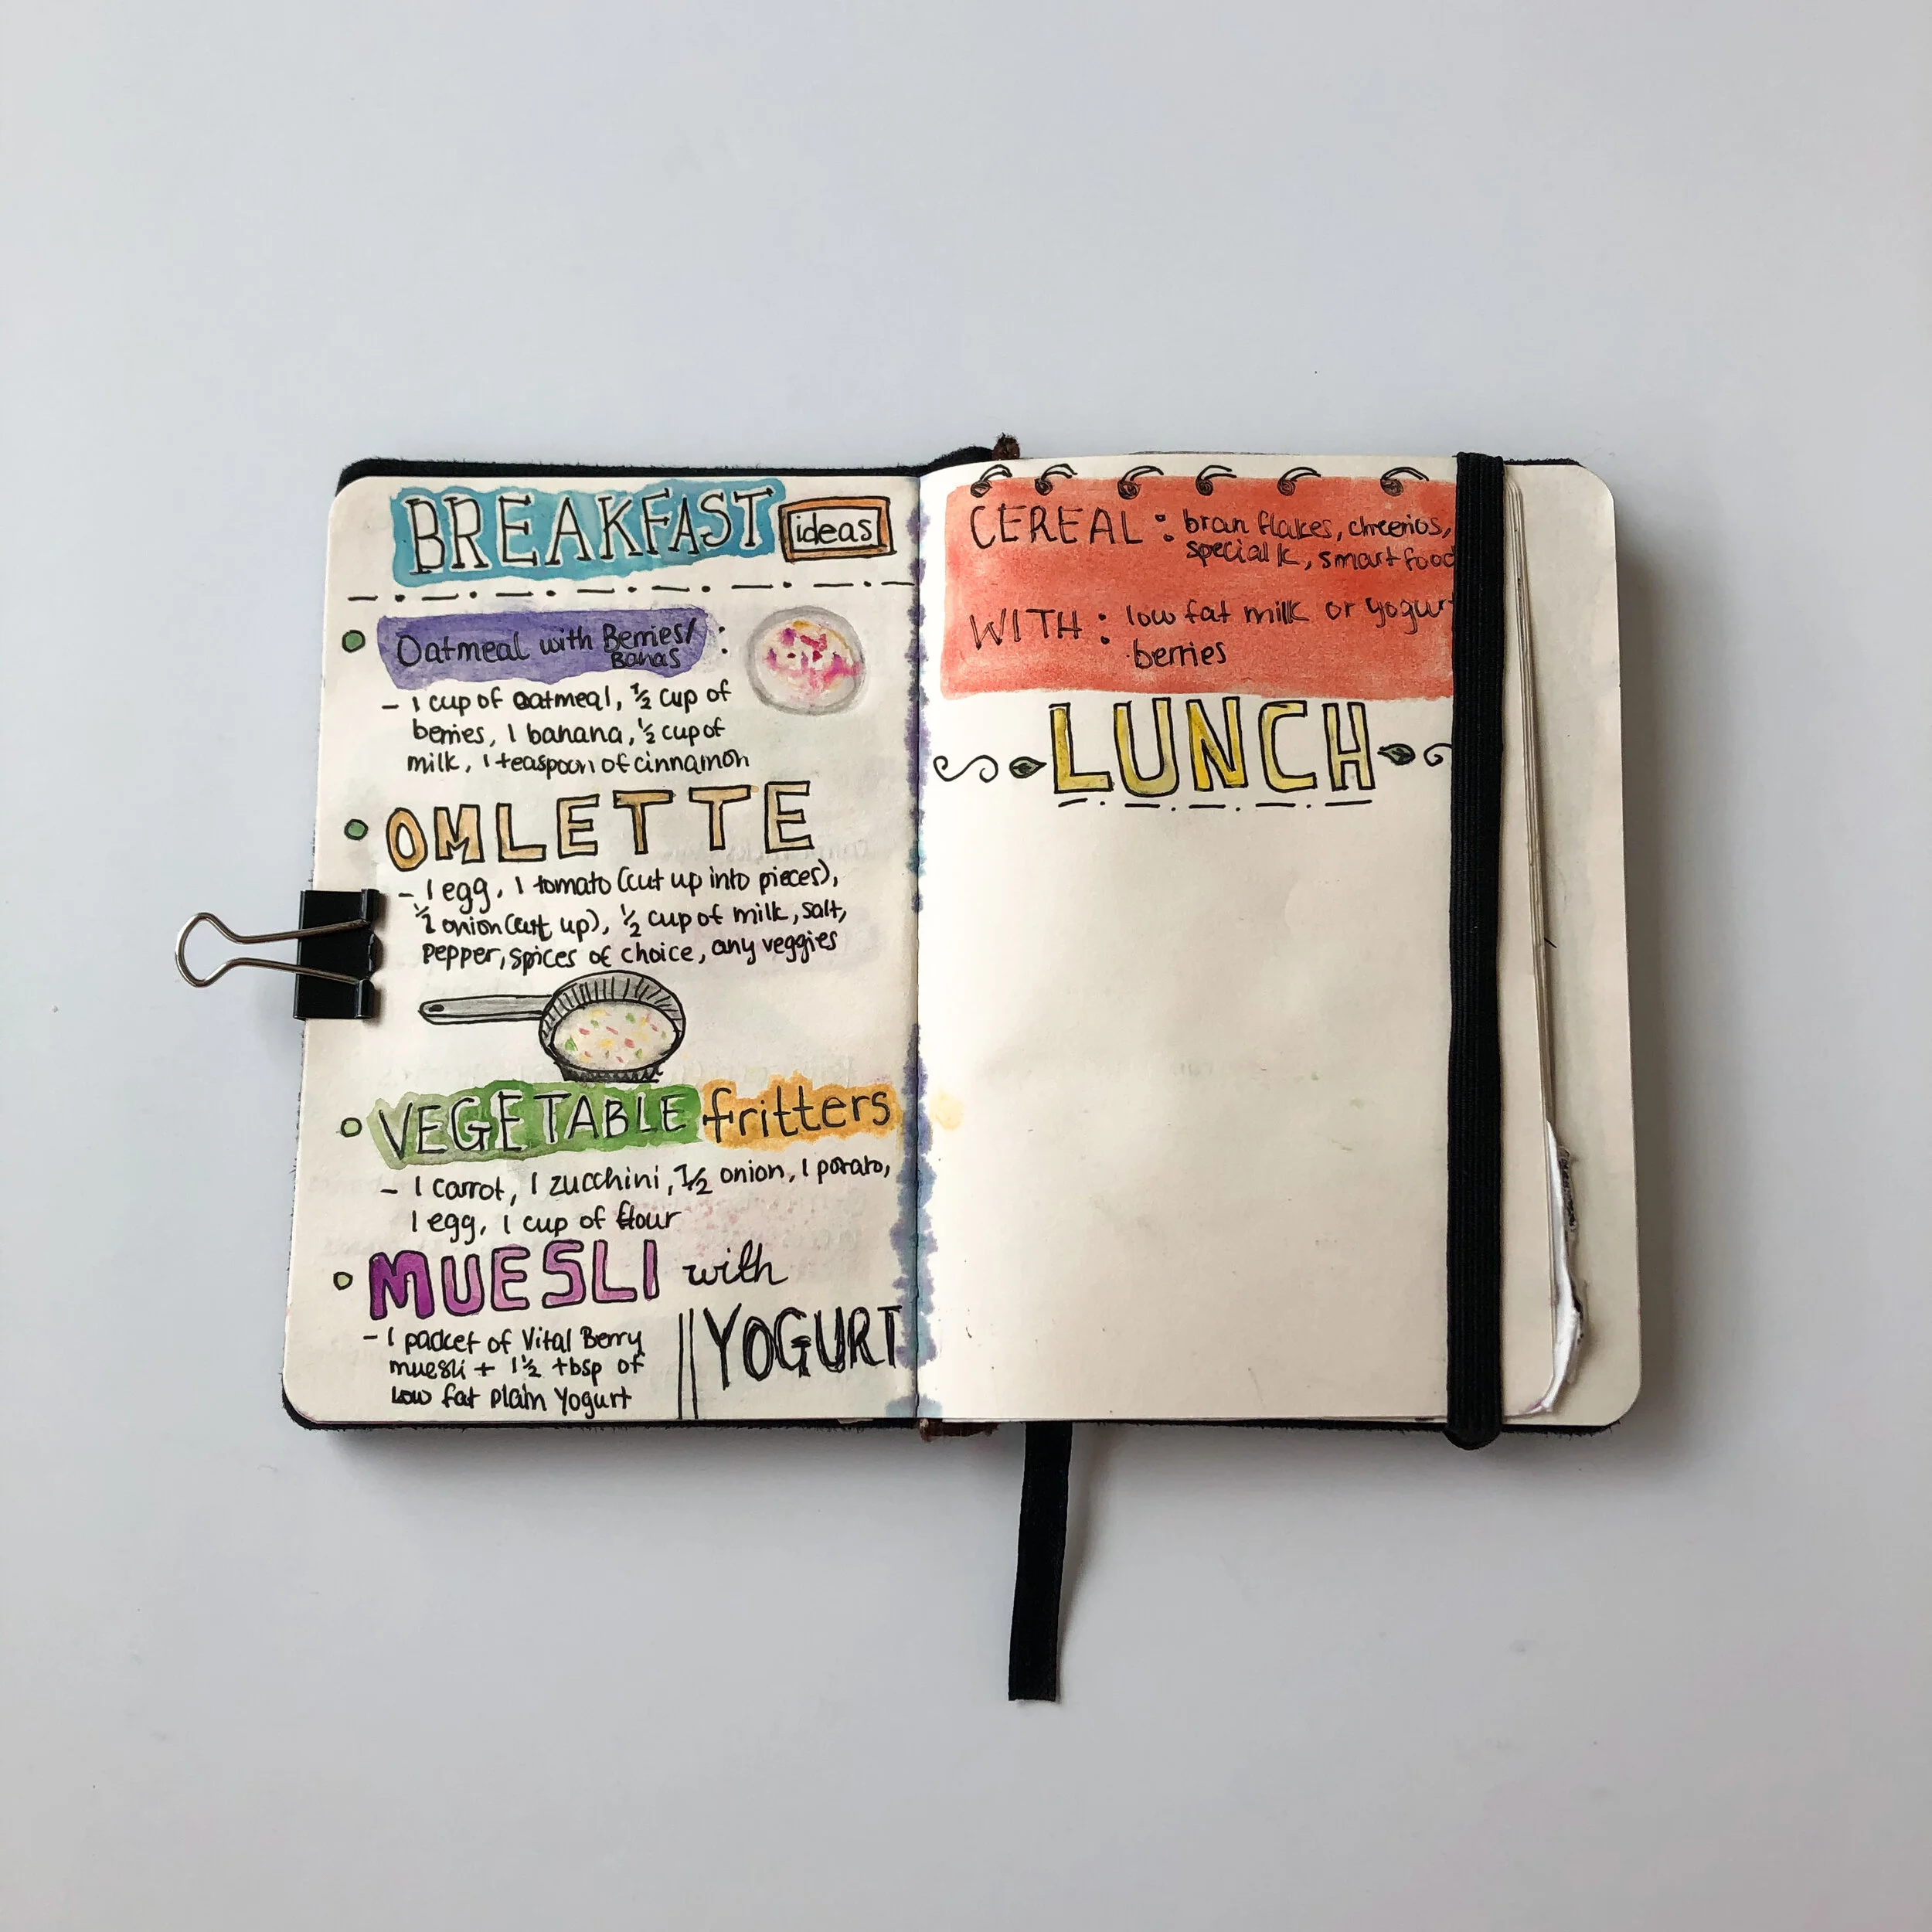 BREAKFAST ideas
Oatmeal with Berries/
Banas :
- 1 cup of oatmeal, ½ cup of
berries, 1 banana, ½ cup of
milk, 1 teaspoon of cinnamon
OMLETTE
- 1 egg, 1 tomato (cut up into pieces),
½ onion (cut up), ½ cup of milk, salt,
pepper, spices of choice, any veggies
VEGETABLE fritters
- 1 carrot, 1 zucchini, ½ onion, 1 potato,
1 egg, 1 cup of flour
MUESLI with
YOGURT
- 1 packet of Vital Berry
muesli + 1½ tbsp of
Low fat plain Yogurt
CEREAL : bran flakes, cheerios,
special k, smart food
WITH : low fat milk or yogurt
berries
LUNCH